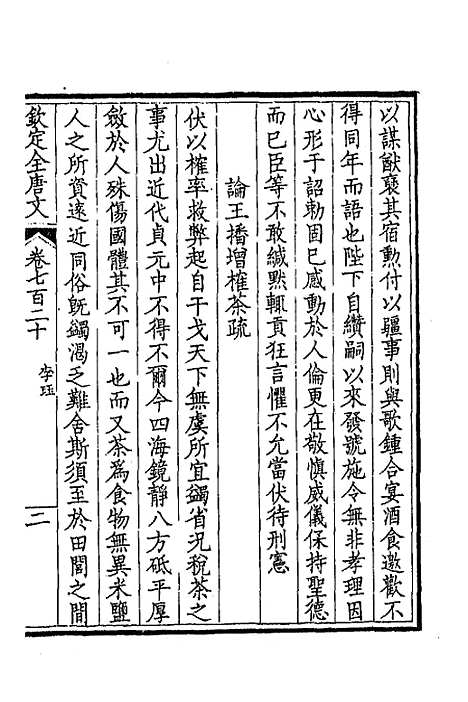 以謀猷褒其宿勳付以疆事則與歌鍾合宴酒食邀歡不
得同年而語也陛下自纘嗣以來發號施令無非孝理因
心形于詔勅固已感動於人倫更在敬慎威儀保持聖德
而已臣等不敢緘默輒貢狂言懼不允當伏待刑憲
論王播增榷茶疏
伏以榷率救弊起自干戈天下無虞所宜蠲省況稅茶之
事尤出近代貞元中不得不爾今四海鏡靜八方砥平厚
斂於人殊傷國體其不可一也而又茶爲食物無異米鹽
人之所資遠近同俗旣蠲渴乏難舍斯須至於田閭之間
欽定全唐文 卷七百二十 李珏 二